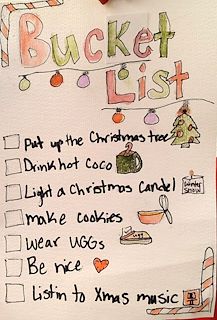 Bucket
List
Put up the Christmas tree
Drink hot coco
Light a Christmas candel
make cookies
Wear UGGs
Be nice
Listin to Xmas music